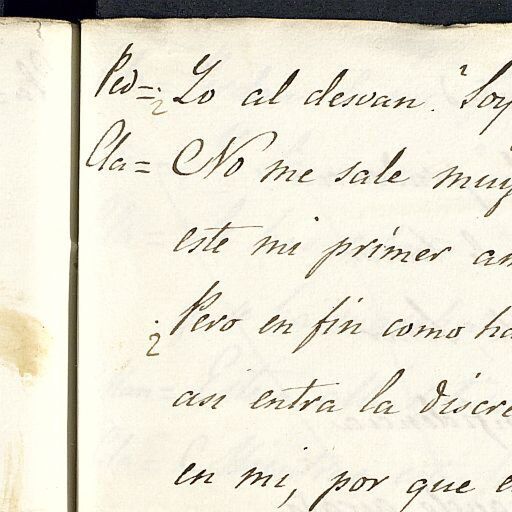 Ped = ¿Yo al desvan? Soy
Cla = No me sale muy
este mi primer am
¿Pero en fin como ha
asi entra la discre
en mi, por que e